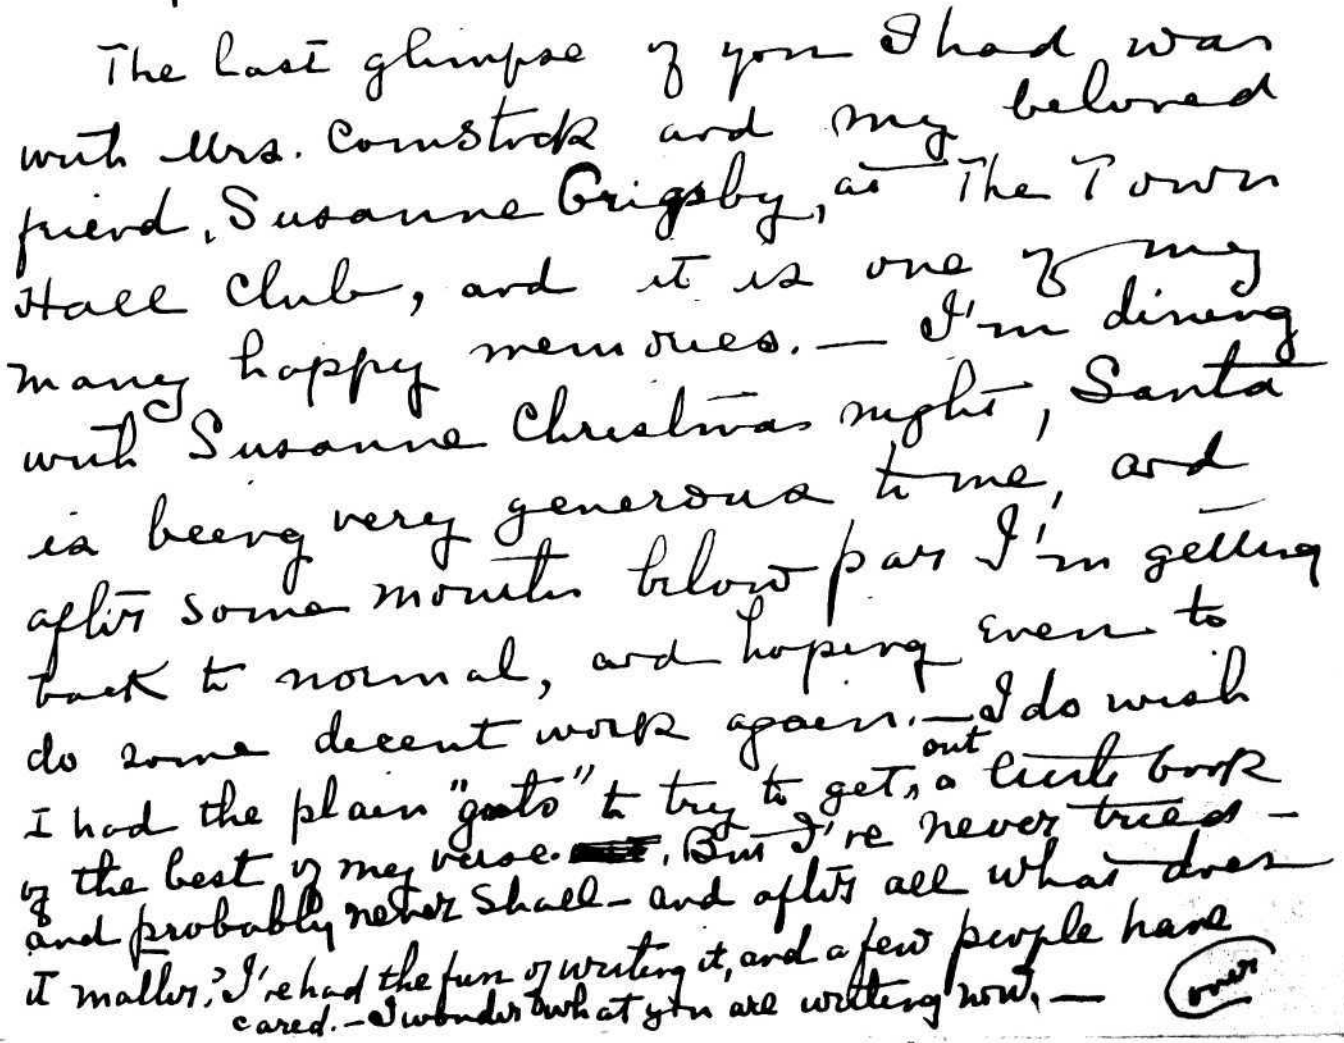 The last glimpse of you I had was
with Mrs. Comstock and my beloved
friend, Susanne Grigsby, at The Town
Hall Club, and it is one of my
many happy memories. — I'm dining
with Susanne Christmas night, Santa
is being very generous to me, and
after some months below par I'm getting
back to normal, and hoping even to
do some decent work again. — I do wish
I had the plain "guts" to try to get out a little book
of the best of my verse. But I've never tried —
and probably never shall — and after all what does
it matter? I've had the fun of writing it, and a few people have
cared. — I wonder what you are writing now. —
over